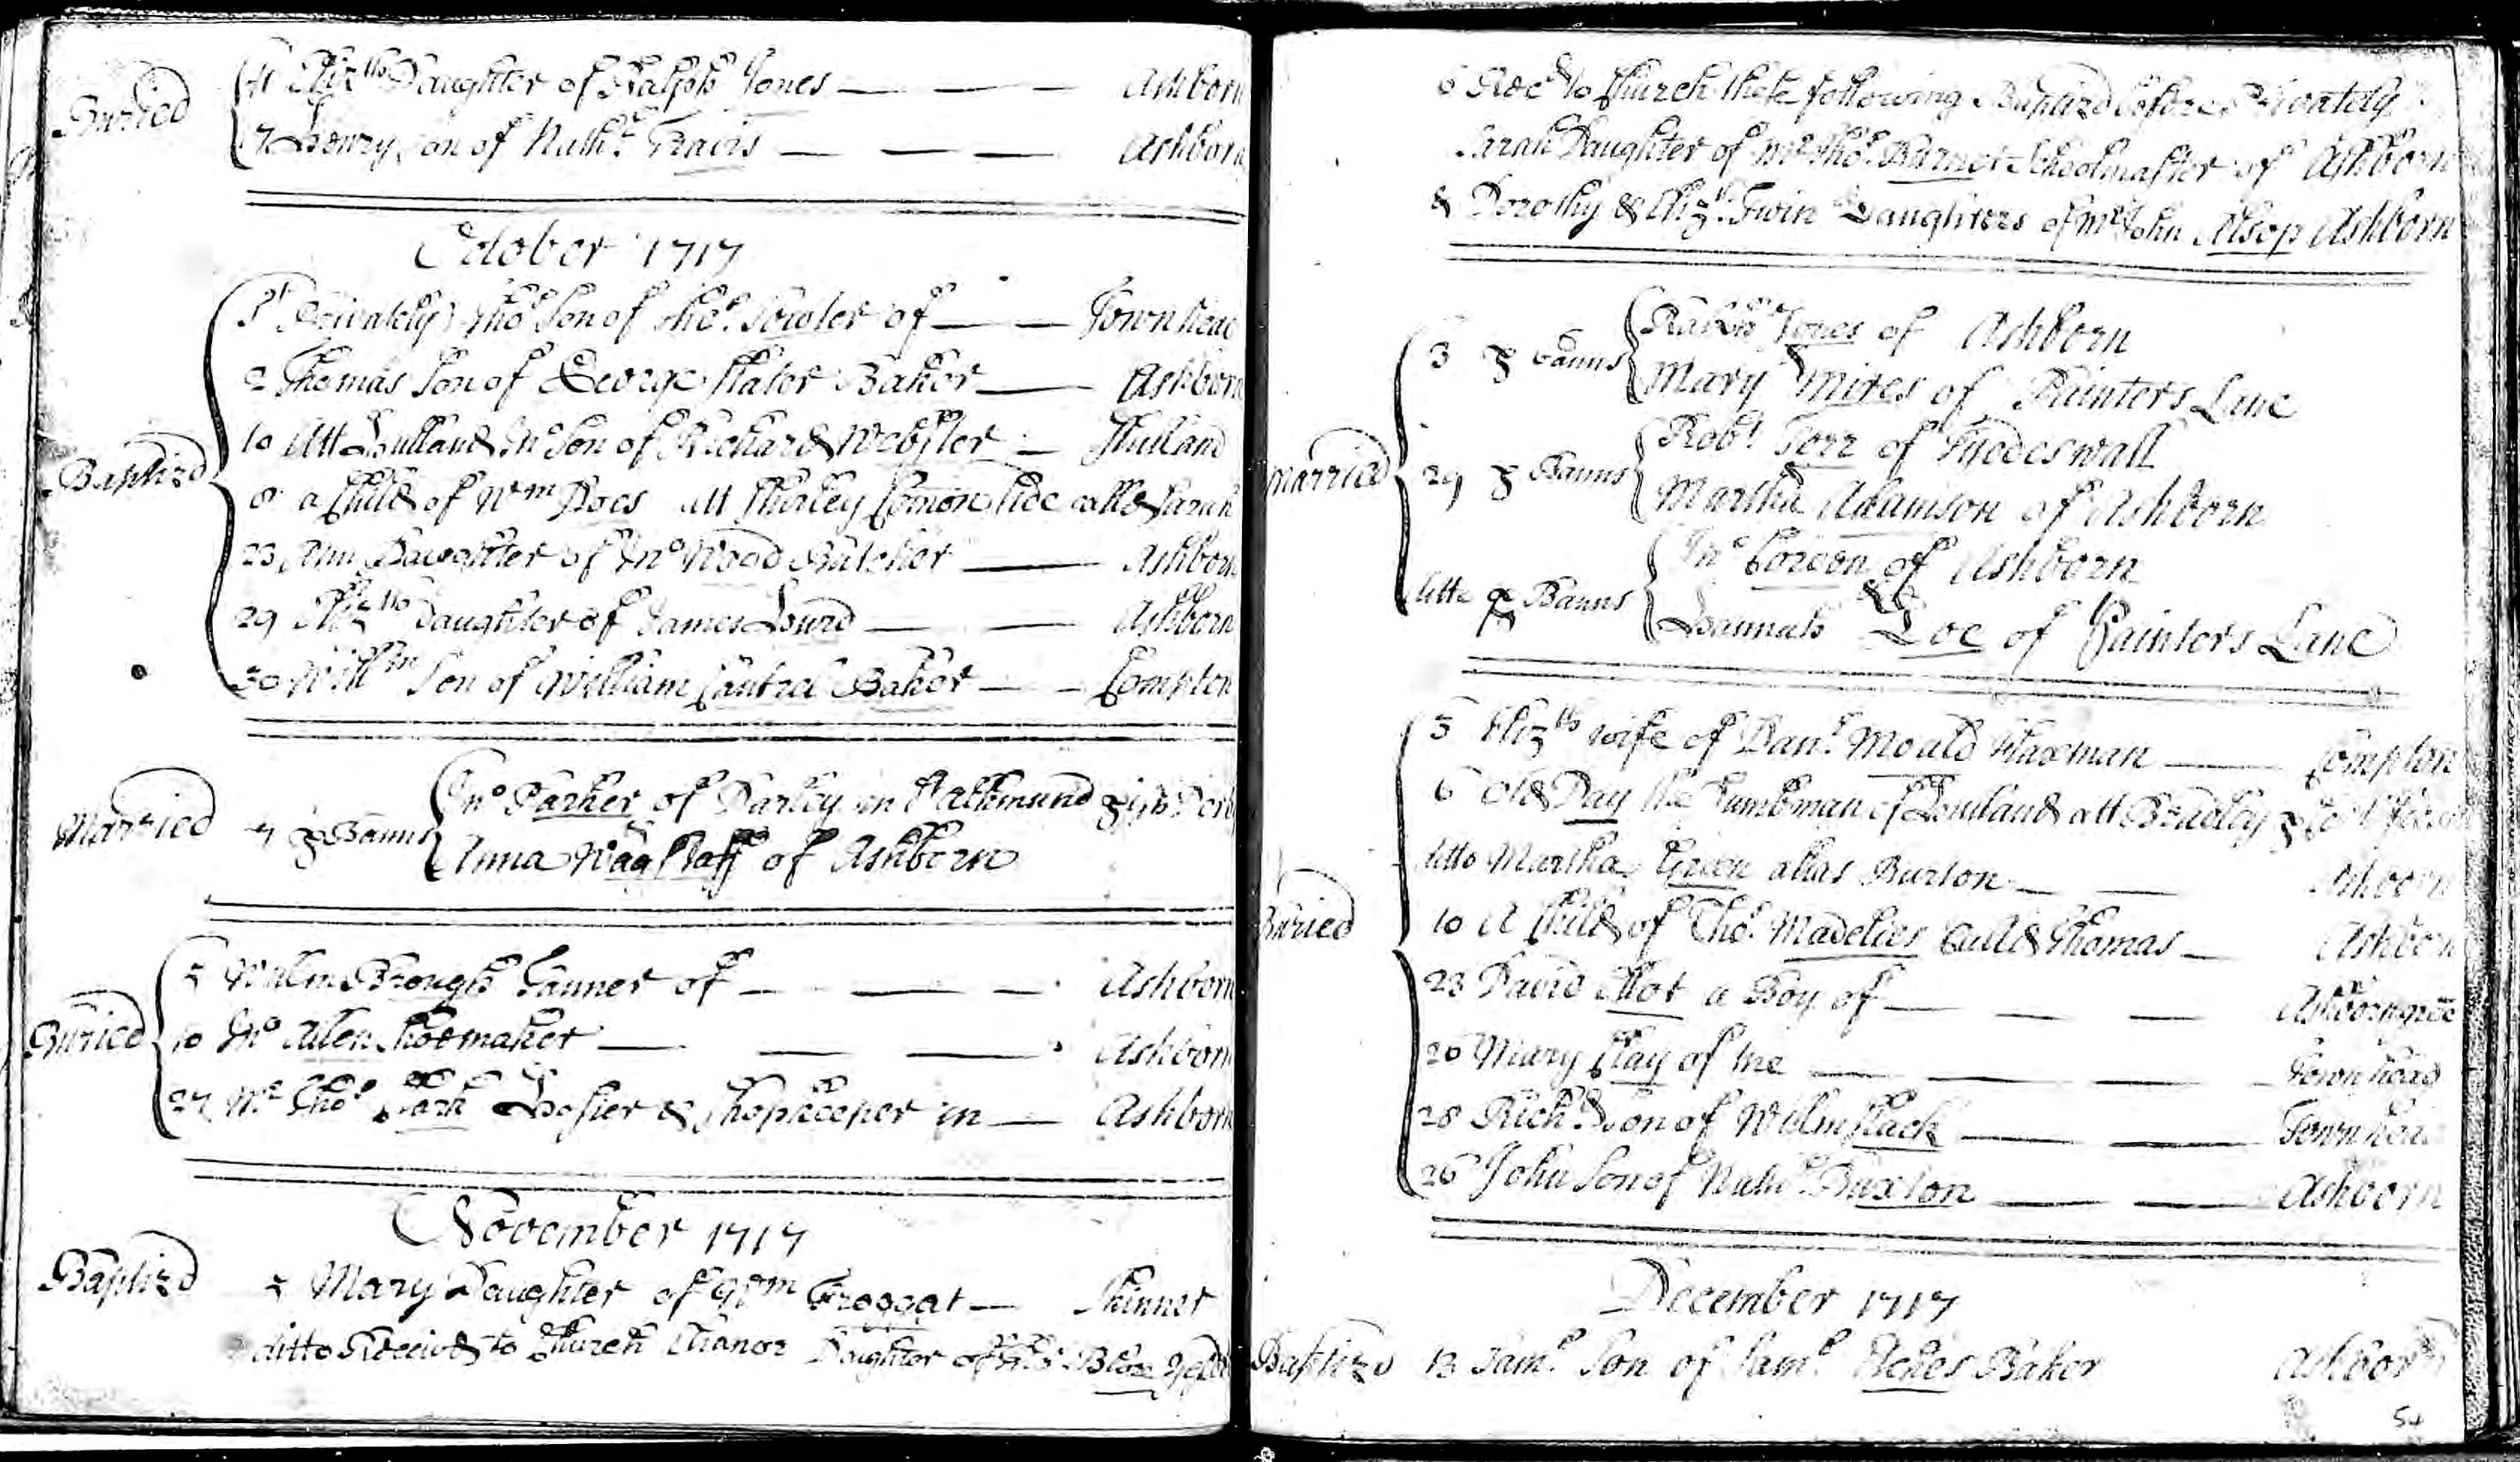 Buried
Elizth Daughter of Ralph Jones Ashborn
Henry son of Nathl Travis Ashborn
October 1717
Baptizd
1st Privately Tho: Son of Tho: Fowler of Townhead
2 Thomas Son of George Slator Baker Ashborn
10 Att Hulland Jno Son of Richard Webster Hulland
8 a Child of Wm Roes att Comon side calld Sarah
23 Ann Daughter of Jno Wood Butcher Ashborn
29 Elizth Daughter of James Hurd Ashborn
30 Willm Son of William Cantrel Baker Compton
Married
7 p Banns Jno Parker of Darley in St Alkmund psh Derb
Anna Wagstaff of Ashborn
Buried
Willm Brough Tanner of Ashborn
10 Jno Allen Shoemaker Ashborn
27 Mr Tho: Hosier & Shopkeeper in Ashborn
November 1717
Baptizd
Mary Daughter of Wm Froggat Skinner
ditto Receivd to Church Elianor Daughter of
6 Recd to Church these following Baptizd before Privately
Sarah Daughter of Mr Tho: Barnet Schoolmaster of Ashborn
& Dorothy & Eliz: Twin Daughters of Mr John Alsop Ashborn
Married
3 p banns Ralph Jones of Ashborn
Mary Mires of Painters Lane
29 p Banns Robt Torr of Rodeswall
Martha Adamson of Ashborn
ditto p Banns Jno of Ashborn
Hannah Loe of Painters Lane
Buried
5 Elizth wife of Danl Mould Flaxman Compton
6 Old Day the of att Bradley
ditto Martha Green alias Burton Ashborn
10 A Child of Tho: Madeliers Calld Thomas Ashborn
23 David a Boy of Ashborngree
26 Mary Clay of the Townhead
28 Richd Son of Willm Slack Townhead
26 John Son of Nathl Buxton Ashborn
December 1717
Baptizd 13 Saml Son of Saml Baker Ashborn
54